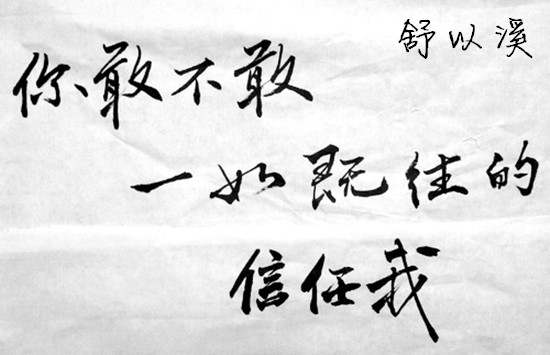 舒以溪
你敢不敢
一如既往的
信任我